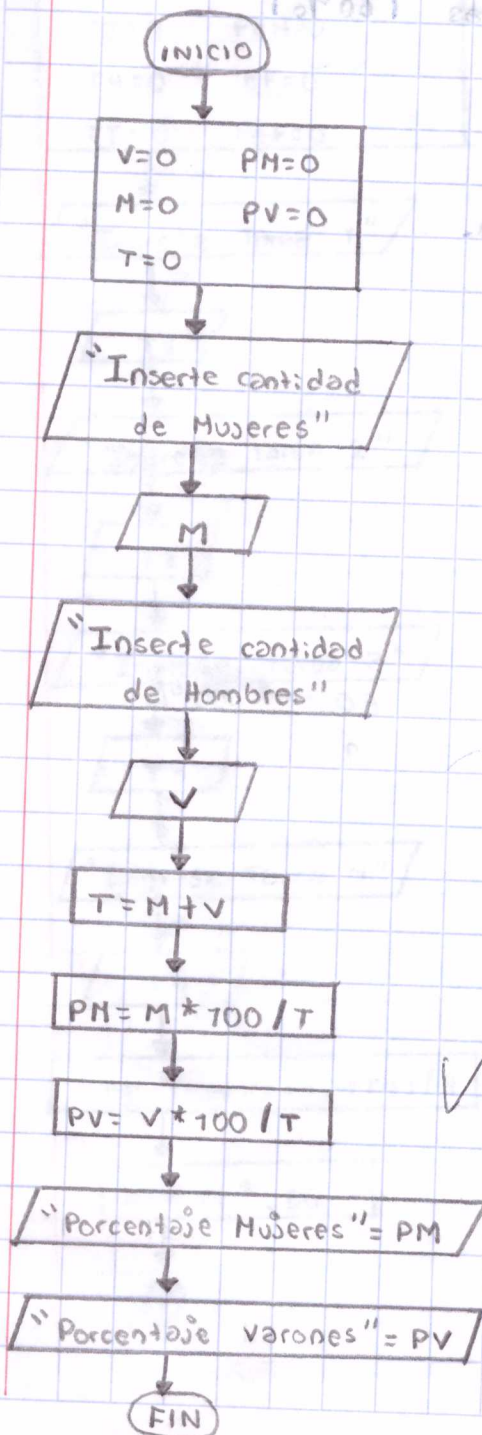 INICIO
V=0 PM=0
M=0 PV=0
T=0
"Inserte cantidad
de Mujeres"
M
"Inserte cantidad
de Hombres"
V
T=M+V
PM=M*100/T
PV=V*100/T
"Porcentaje Mujeres"=PM
"Porcentaje varones"=PV
FIN